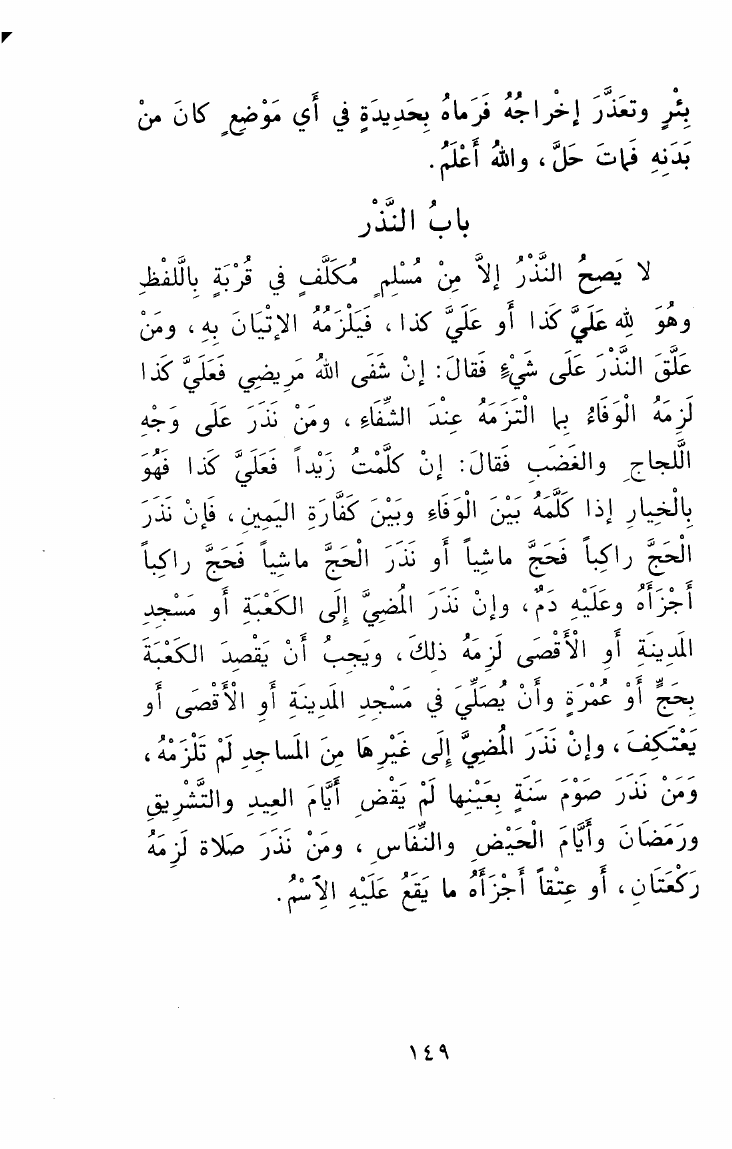 بِئْرٍ وتعَذَّرَ إخْراجُهُ فَرَماهُ بِحَدِيدَةٍ في أَي مَوْضِعٍ كانَ منْ
بَدَنِهِ فَماتَ حَلَّ، واللهُ أَعْلَمُ.
بابُ النَّذْر
لا يَصِحُّ النَّذْرُ إلاَّ مِنْ مُسْلِمٍ مُكَلَّفٍ في قُرْبَةٍ بِاللَّفْظِ
وهُوَ لِلهِ عَلَيَّ كَذا أو عَلَيَّ كذا، فَيَلْزَمُهُ الإتْيَانَ بِهِ، ومَنْ
عَلَّقَ النَّذْرَ عَلَى شَيْءٍ فَقالَ: إنْ شَفَى اللهُ مَرِيضِي فَعَلَيَّ كَذا
لَزِمَهُ الْوَفَاءُ بِما الْتَزَمَهُ عِنْدَ الشِّفَاءِ، ومَنْ نَذَرَ عَلَى وَجْهِ
اللَّجاجِ والغَضَبِ فَقالَ: إنْ كَلَّمْتُ زَيْداً فَعَلَيَّ كَذا فَهُوَ
بِالْخِيارِ إذا كَلَّمَهُ بَيْنَ الْوَفَاءِ وبَيْنَ كَفَّارَةِ اليَمِينِ، فَإنْ نَذَرَ
الْحَجَّ راكِباً فَحَجَّ ماشِياً أو نَذَرَ الْحَجَّ ماشِياً فَحَجَّ راكِباً
أجْزَأهُ وعَلَيْهِ دَمٌ، وإنْ نَذَرَ الْمُضِيَّ إِلَى الكَعْبَةِ أو مَسْجِدِ
الْمَدِينَةِ أو الْأَقْصَى لَزِمَهُ ذلكَ، ويَجِبُ أنْ يَقْصِدَ الكَعْبَةَ
بِحَجٍّ أَوْ عُمْرَةٍ وأنْ يُصَلِّيَ في مَسْجِدِ الْمَدِينَةِ أو الْأَقْصَى أو
يَعْتَكِفَ، وإنْ نَذَرَ الْمُضِيَّ إِلَى غَيْرِهَا مِنَ الْمَساجِدِ لَمْ تَلْزَمْهُ،
وَمَنْ نَذَرَ صَوْمَ سَنَةٍ بِعَيْنِها لَمْ يَقْضِ أَيَّامَ العِيدِ والتَّشْرِيقِ
ورَمَضَانَ وأيَّامَ الْحَيْضِ والنِّفَاسِ، ومَنْ نَذَرَ صَلاة لَزِمَهُ
رَكْعَتَانِ، أو عِتْقاً أجْزَأهُ ما يَقَعُ عَلَيْهِ الِاسْمُ.
١٤٩